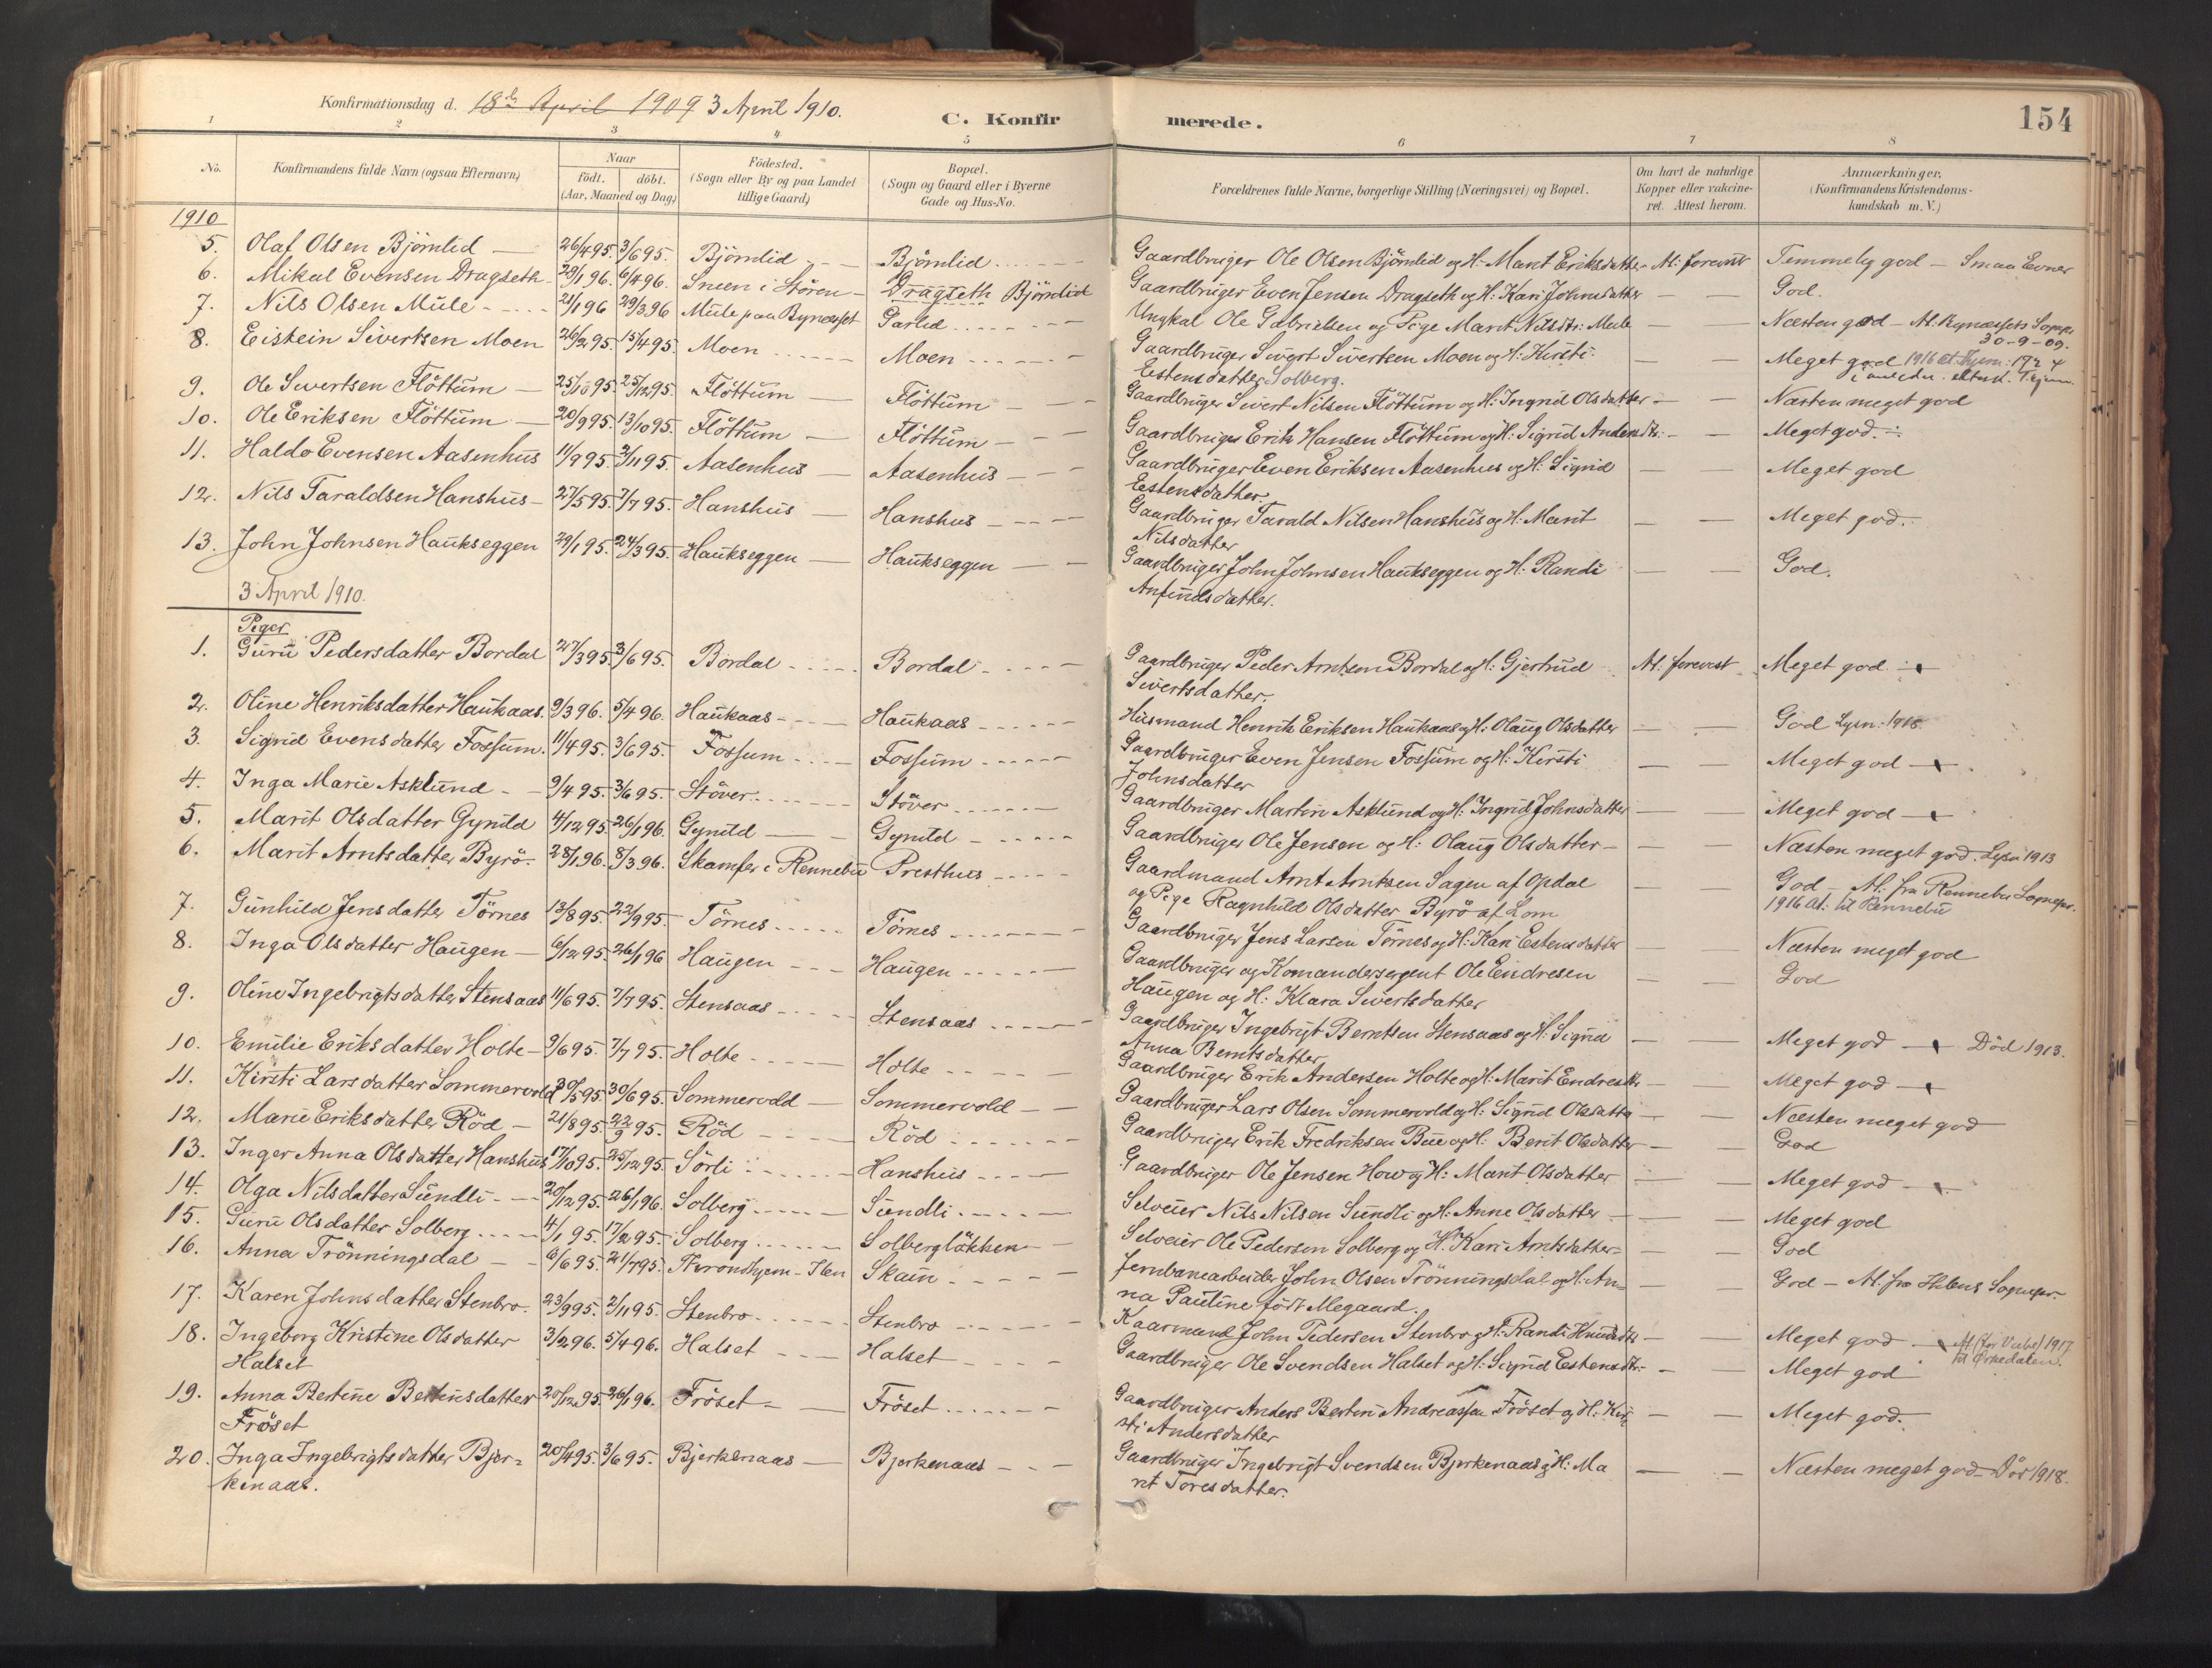 Konfirmationsdag d. 18de April 1909 3 April 1910.
C. Konfirmerede.
154
1 2 3 4 5 6 7 8
No.
Konfirmandens fulde Navn (ogsaa Efternavn)
Naar
födt. döbt.
(Aar, Maaned og Dag)
Födested.
(Sogn eller By og paa Landet
tillige Gaard)
Bopæl.
(Sogn og Gaard eller i Byerne
Gade og Hus-No.
Forældrenes fulde Navne, borgerlige Stilling (Næringsvei) og Bopæl.
Om havt de naturlige
Kopper eller vakcine-
ret. Attest herom.
Anmærkninger.
(Konfirmandens Kristendoms-
kundskab m. V.)
1910
5. Olaf Olsen Björnlid 26/4 95. 3/6 95. Björnlid Björnlid Gaardbruger Ole Olsen Björnlid og H. Marit Eriksdatter At. forevist Temmelig god - Smaa Evner
6. Mikal Evensen Dragseth 29/1 96. 6/4 96. Sneen i Stören Dragseth Björnlid Gaardbruger Even Jensen Dragseth og H. Kari Johnsdatter God.
7. Nils Olsen Mule 21/1 96 29/3 96 Mule paa Bynesset Garlid Ungkal Ole Gabrielsen og Pige Marit Nilsdtr: Mule Næsten god - At. Bynæssets Sognepr.
30-9-09.
8. Eistein Sivertsen Moen 26/2 95. 15/4 95. Moen Moen Gaardbruger Sivert Sivertsen Moen og H. Kirsti
Estensdatter Solberg. Meget god 1916
9. Ole Sivertsen Flöttum 25/10 95 25/12 95. Flöttum Flöttum Gaardbruger Sivert Nilsen Flöttum og H: Ingrid Olsdatter Næsten meget god
10. Ole Eriksen Flöttum 20/9 95 13/10 95. Flöttum Flöttum Gaardbruger Erik Hansen Flöttum og H: Sigrid Andersdtr: Meget god.
11. Haldo Evensen Aasenhus 11/9 95 2/11 95. Aasenhus Aasenhus Gaardbruger Even Eriksen Aasenhus og H: Sigrid
Estensdatter. Meget god
12. Nils Taraldsen Hanshus 27/5 95. 7/7 95. Hanshus Hanshus Gaardbruger Tarald Nilsen Hanshus og H: Marit
Nilsdatter Meget god.
13. John Johnsen Haukseggen 29/1 95. 24/3 95. Haukseggen Haukseggen Gaardbruger John Johnsen Haukseggen og H. Randi
Anfindsdatter. God.
3 April 1910.
Piger
1. Guru Pedersdatter Bordal 27/3 95 3/6 95. Bordal Bordal Gaardbruger Peder Arntsen Bordal og H: Gjertrud
Sivertsdatter. At. forevist Meget god
2. Oline Henriksdatter Haukaas. 9/3 96. 5/4 96. Haukaas Haukaas Husmand Henrik Eriksen Haukaas og H: Olaug Olsdatter God Lysn: 1915.
3. Sigrid Evensdatter Fossum. 11/4 95. 3/6 95. Fossum Fossum Gaardbruger Even Jensen Fossum og H: Kirsti
Johnsdatter Meget god
4. Inga Marie Asklund 9/4 95. 3/6 95. Stöver Stöver Gaardbruger Martin Asklund og H: Ingrid Johnsdatter Meget god
5. Marit Olsdatter Gynild 4/12 95 26/1 96. Gynild Gynild Gaardbruger Ole Jensen og H: Olaug Olsdatter Næsten meget god. Lysn 1913
6. Marit Arntsdatter Byrö 28/1 96. 8/3 96. Skamfer i Rennebu Presthus Gaardmand Arnt Arntsen Sagen af Opdal
og Pige Ragnhild Olsdatter Byrö af Lom God - At: fra Rennebu Sognepr.
1916 At. til Rennebu
7. Gunhild Jensdatter Törnes 13/8 95. 22/9 95. Törnes Törnes Gaardbruger Jens Larsen Törnes og H: Kari Estensdatter Næsten meget god
8. Inga Olsdatter Haugen 6/12 95. 26/1 96 Haugen Haugen Gaardbruger og Komandersergent Ole Endresen
Haugen og H: Klara Sivertsdatter God
9. Oline Ingebrigtsdatter Stensaas 11/6 95. 7/7 95. Stensaas Stensaas Gaardbruger Ingebrigt Berntsen Stensaas og H: Sigrid
Anna Berntsdatter Meget god Död 1913.
10. Emilie Eriksdatter Holte 9/6 95. 7/7 95. Holte Holte Gaardbruger Erik Andersen Holte og H: Marit Endresdtr Meget god
11. Kirsti Larsdatter Sommervold 30/5 95. 30/6 95. Sommervold Sommervold Gaardbruger Lars Olsen Sommervold og H: Sigrid Olsdatter Næsten meget god
12. Marie Eriksdatter Röd 21/8 95. 22/9 95. Röd Röd Gaardbruger Erik Fredriksen Bue og H: Berit Olsdatter God
13. Inger Anna Olsdatter Hanshus 17/10 95. 25/12 95. Sörli Hanshus Gaardbruger Ole Jensen How og H: Marit Olsdatter Meget god
14. Olga Nilsdatter Sundli 20/12 95. 26/1 96. Solberg Sundli Selveier Nils Nilsen Sundli og H: Anne Olsdatter Meget god
15. Guru Olsdatter Solberg 4/1 95. 17/2 95. Solberg Solberglökken Selveier Ole Pedersen Solberg og H: Kari Arntsdatter God
16. Anna Trönningsdal 6/6 95. 21/7 95. Throndhjem - Ilen Skain Jernbanearbeider John Olsen Trönningsdal og H: An=
na Pauline födt Megaard. God - At. fra Ihlens Sognepr.
17. Karen Johnsdatter Stenbro. 23/9 95. 2/11 95. Stenbro Stenbro Kaarmand John Pedersen Stenbro og H: Randi Knudsdtr Meget god At (for Viebe) 1917
til Orkedalen.
18. Ingeborg Kristine Olsdatter
Halset 3/2 96. 5/4 96. Halset Halset Gaardbruger Ole Svendsen Halset og H: Sigrid Estensdtr: Meget god
19. Anna Bertine Bertinsdatter
Fröset 20/12 95. 26/1 96. Fröset Fröset Gaardbruger Anders Bertin Andreassen Fröset og H: Kir
sti Andersdatter Meget god.
20. Inga Ingebrigtsdatter Bjer=
kenaas. 20/4 95. 3/6 95. Bjerkenaas Bjerkenaas Gaardbruger Ingebrigt Svendsen Bjerkenaas og H: Ma
rit Toresdatter. Næsten meget god - Död 1918.